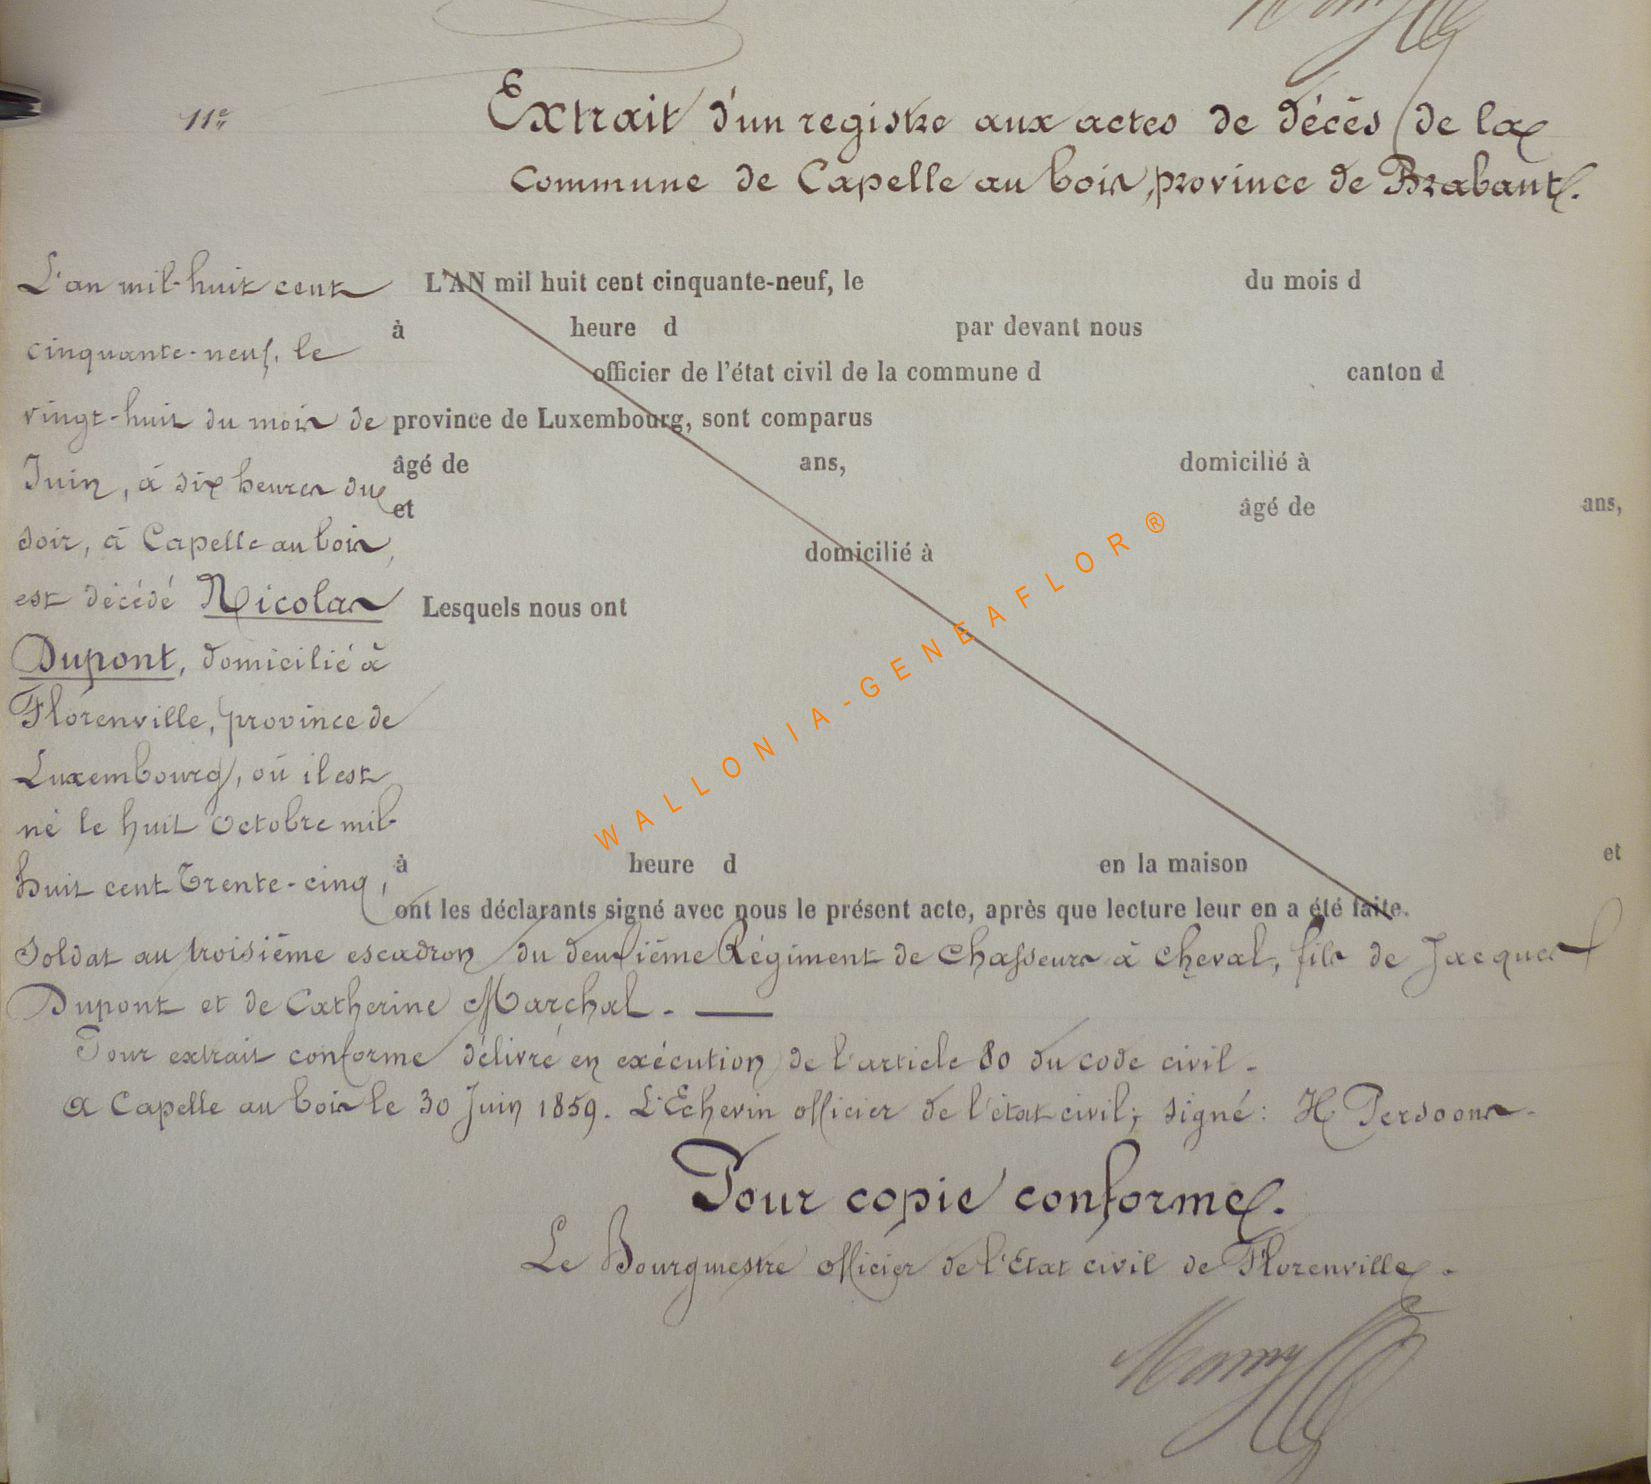 11e
Extrait d'un registre aux actes de décès de la
commune de Capelle au bois, province de Brabant.
L'an mil-huit cent
cinquante-neuf, le
vingt-huit du mois de
Juin, à six heures du
soir, à Capelle au bois,
est décédé Nicolas
Dupont, domicilié à
Florenville, province de
Luxembourg, où il est
né le huit Octobre mil-
huit cent Trente-cinq,
L'AN mil huit cent cinquante-neuf, le du mois d
à heure d par devant nous
officier de l'état civil de la commune d canton d
province de Luxembourg, sont comparus
âgé de ans, domicilié à
et âgé de ans,
domicilié à
Lesquels nous ont
WALLONIA-GENEAFLOR®
à heure d en la maison et
ont les déclarants signé avec nous le présent acte, après que lecture leur en a été faite.
Soldat au troisième escadron du deuxième Régiment de Chasseurs à cheval, fils de Jacques
Dupont et de Catherine Marchal. —
Pour extrait conforme délivré en exécution de l'article 80 du code civil.
A Capelle au bois le 30 Juin 1859. L'Echevin officier de l'état civil; signé: H Persoons.
Pour copie conforme.
Le Bourgmestre officier de l'Etat civil de Florenville.